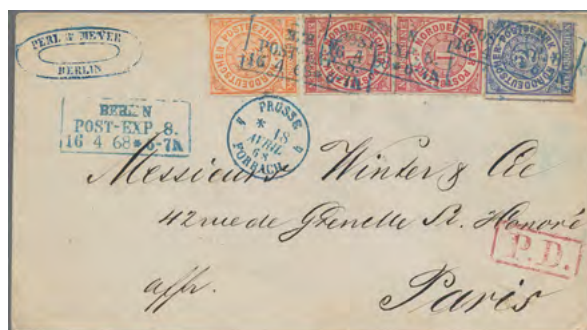 PERL & MEYER
BERLIN
NORDDEUTSCHER POSTBEZIRK
BERLIN
POST-EXP. 8.
16 4 68 * 6-7A
PRUSSE
* 18
AVRIL
68
FORBACH
Messieurs Winter & Cie
42 rue de Grenelle St. Honoré
P.D.
affr.
Paris